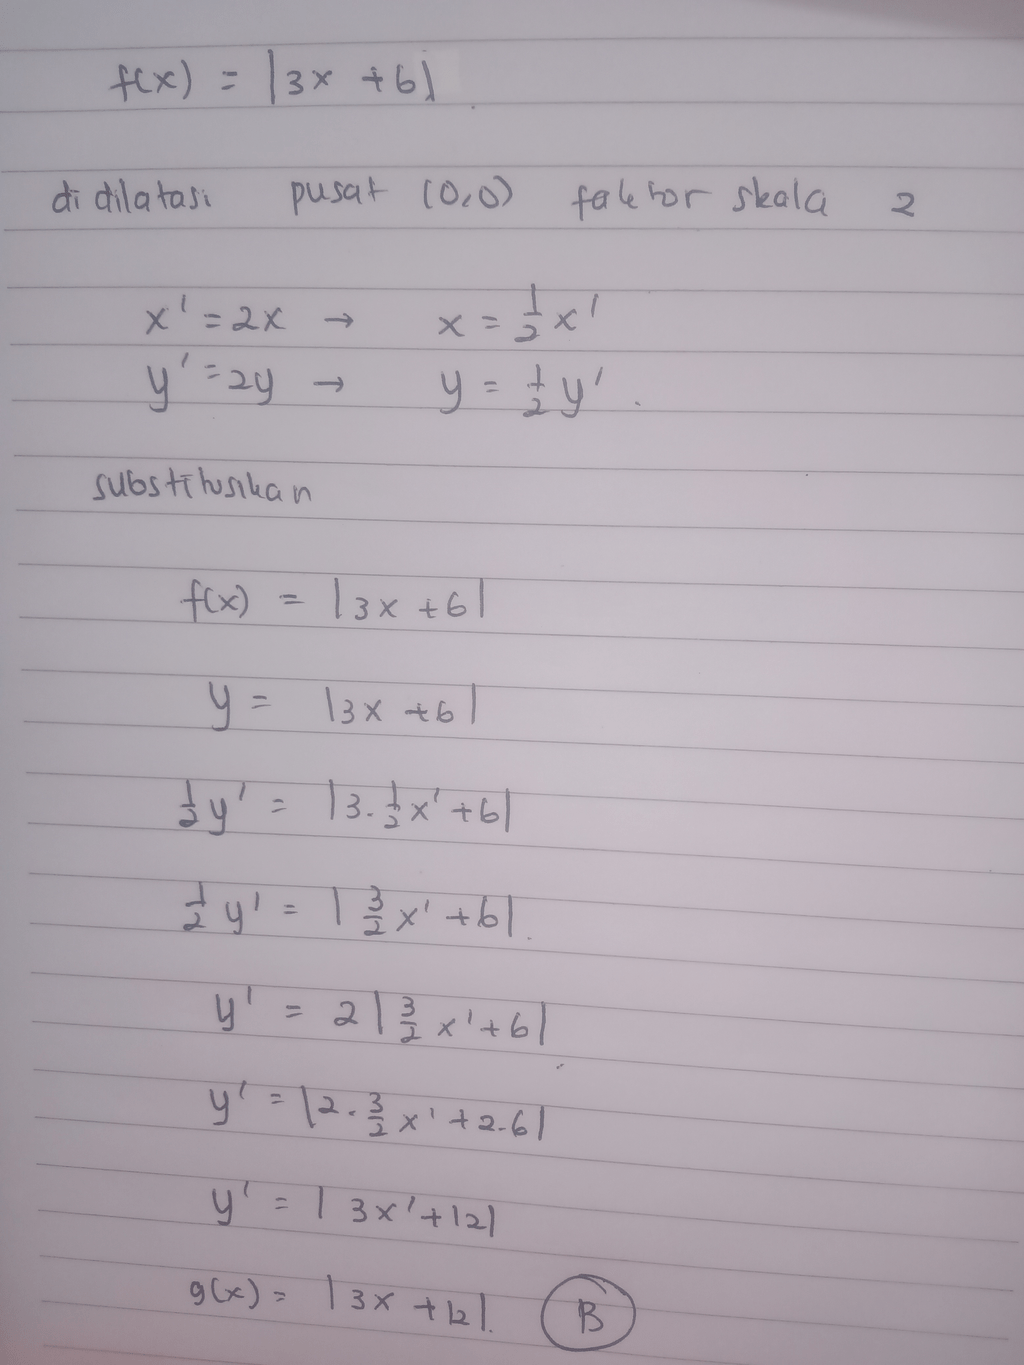 f(x) = |3x + 6|
di dilatasi pusat (0,0) faktor skala 2
x' = 2x → x = 1/2 x'
y' = 2y → y = 1/2 y'.
substitusikan
f(x) = |3x + 6|
y = |3x + 6|
1/2 y' = |3. 1/2 x' + 6|
1/2 y' = |3/2 x' + 6|.
y' = 2 |3/2 x' + 6|
y' = |2. 3/2 x' + 2.6|
y' = |3x' + 12|
g(x) = |3x + 12|. B